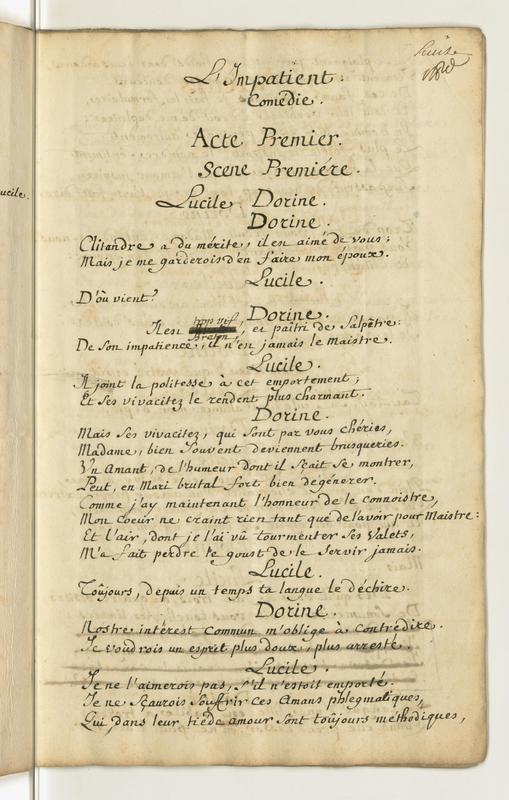 L'Impatient.
Comédie.
Acte Premier.
Scene Premiére.
Lucile. Dorine.
Dorine.
Clitandre a du mérite, il est aimé de vous;
Mais je me garderois d'en faire mon époux.
Lucile.
ucile.
D'où vient?
Dorine.
Il est trop vif, et paîtri de Salpêtre:
Breton,
De Son impatience, il n'en jamais le Maistre.
Lucile.
Il joint la politesse à cet emportement;
Et Ses vivacitez le rendent plus charmant.
Dorine.
Mais Ses vivacitez, qui Sont par vous chéries,
Madame, bien Souvent deviennent brusqueries.
Un Amant, de l'humeur dont il Sçait Se montrer,
Peut, en Mari brutal fort bien dégénerer.
Comme j'ay maintenant l'honneur de le connoistre,
Mon Coeur ne craint rien tant que de l'avoir pour Maistre:
Et l'air, dont je l'ai vû tourmenter Ses Valets,
M'a fait perdre le goust de le Servir jamais.
Lucile.
Toûjours, depuis un temps ta langue le déchire.
Dorine.
Nostre intérest commun m'oblige à Contredire.
Je voudrois un esprit plus doux, plus arresté.
Lucile.
Je ne l'aimerois pas, S'il n'estoit emporté.
Je ne Sçaurois Souffrir ces Amans phlegmatiques,
Qui dans leur tiéde amour Sont toûjours méthodiques,